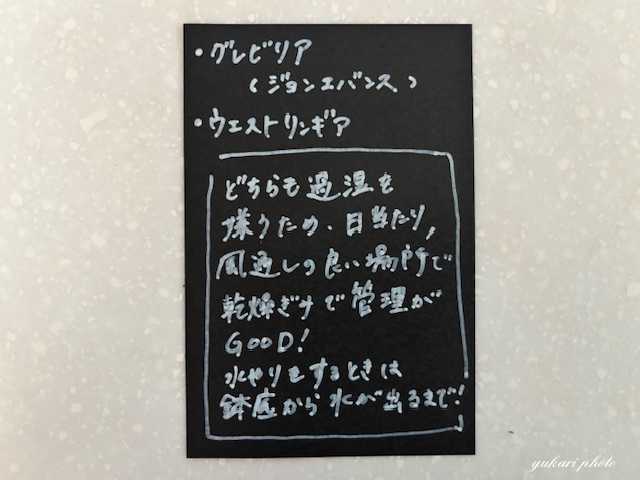 ・グレビリア
(ジョンエバンス)
・ウエストリンギア
どちらも過湿を
嫌うため、日当たり,
風通しの良い場所で
乾燥ぎみで管理が
GOOD!
水やりをするときは
鉢底から水が出るまで!
yukari photo